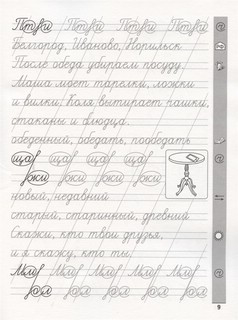 Птги Птги Птги Птги
Белгород, Иваново, Норильск
После обеда убираем посуду.
Маша моет тарелки, ложки
и вилки. Коля вытирает чашки,
стаканы и блюдца.
обеденный, обедать, пообедать
ща ща ща ща
жи жи жи жи
новый, недавний
старый, старинный, древний
Скажи, кто твои друзья,
и я скажу, кто ты.
9